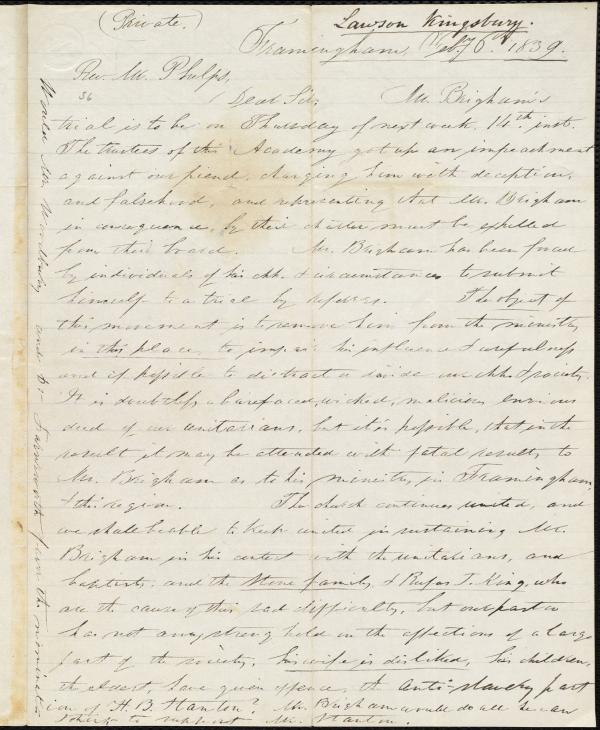 (Private.)
Lawson Kingsbury.
Framingham, Feb. 6th 1839.
Rev. Mr. Phelps,
56
Dear Sir, Mr. Brigham's
trial is to be on Thursday of next week, 14th inst.
The trustees of the Academy got up an impeachment
against our friend, charging him with deception,
and falsehood, and representing that Mr. Brigham
in consequence, by their charter must be expelled
from their board. Mr. Brigham has been forced
by individuals of his chh. & circumstances to submit
himself to a trial by referees. The object of
this movement is to remove him from the ministry
in this place, to impair his influence & usefulness
and if possible to distract & divide our chh. & society.
It is doubtless a barefaced, wicked, malicious envious
deed of our unitarians, but it is possible, that in the
result it may be attended with fatal results to
Mr. Brigham as to his ministry in Framingham,
& this region. The church continues united, and
we shall be able to keep united in sustaining Mr.
Brigham in his contest with the unitarians, and
baptists, and the Stone family, & Rufus T. King, who
are the cause of this sad difficulty, but our pastor
has not any strong hold in the affections of a large
part of the society, his wife is disliked, his children,
the eldest, have given offence, the anti-slavery part
ion of H. B. Stanton? Mr. Brigham would do all he can
to support Mr. Stanton.
Would Mr. Woodbury and Dr. Farnsworth favor the nominat